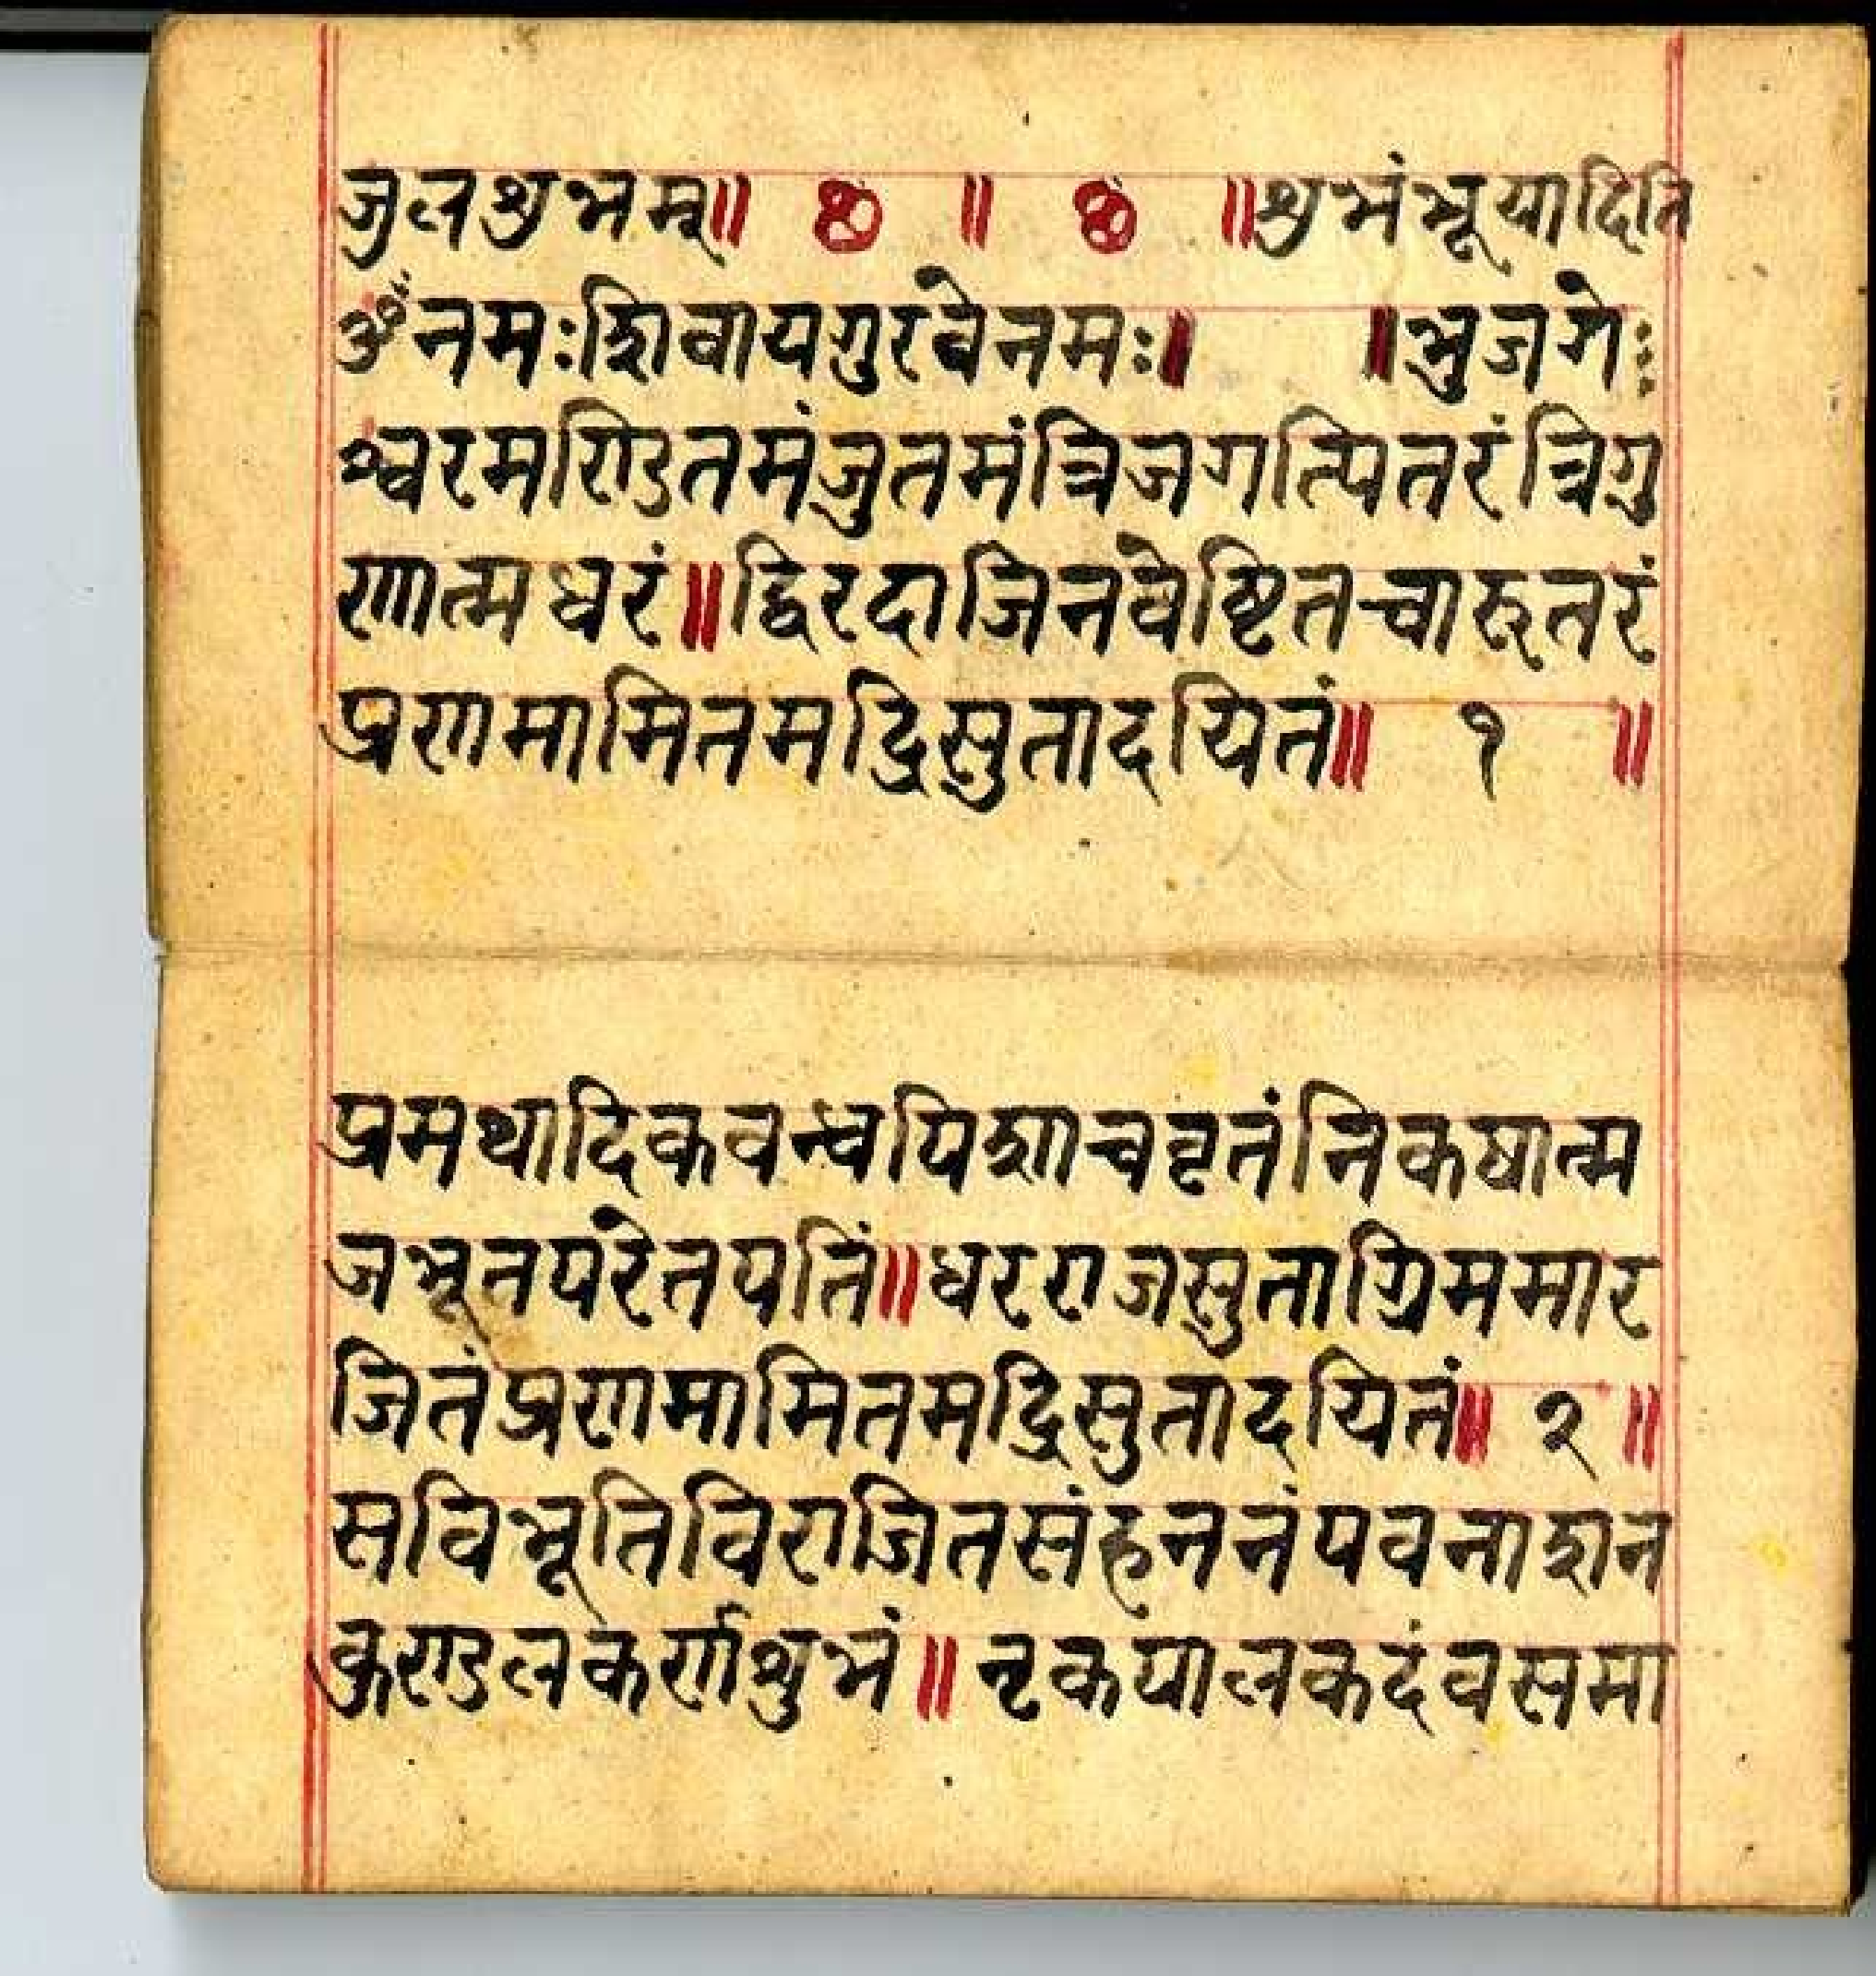 जुलशुभम्॥ ॥ ॥शुभंभूयादिति
ॐनमःशिवायगुरवेनमः॥ ॥भुजगे
श्वरमण्डितमंजुतमंत्रिजगत्पितरंत्रिगु
णात्मधरं॥द्विरदाजिनवेष्टितचारुतरं
प्रणमामितमद्रिसुतादयितं॥ १ ॥
प्रमथादिकवन्धपिशाचवृतंनिकषात्म
जभूतपरेतपतिं॥धरराजसुताग्रिममार
जितंप्रणमामितमद्रिसुतादयितं॥ २ ॥
सविभूतिविराजितसंहननंपवनाशन
कुण्डलकर्णशुभं॥ नृकपालकदंवसमा